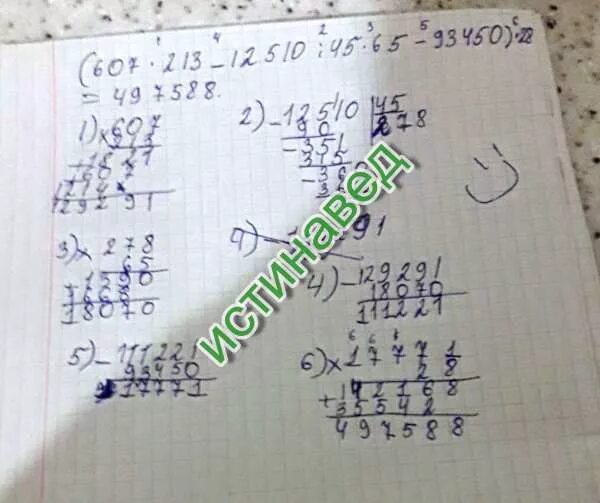 (607 · 213 - 12510 : 45 · 65 - 93450) · 28
= 497588.
1) × 607
213
+ 1821
607
1214
129291
2) - 12510 | 45
90 278
- 351
315
- 360
3) × 278
65
+ 1390
1668
18070
4) - 291
4) - 129291
18070
111221
5) - 111221
93450
17771
6) × 17771
28
+ 142168
35542
497588
ИСТИНАВЕД